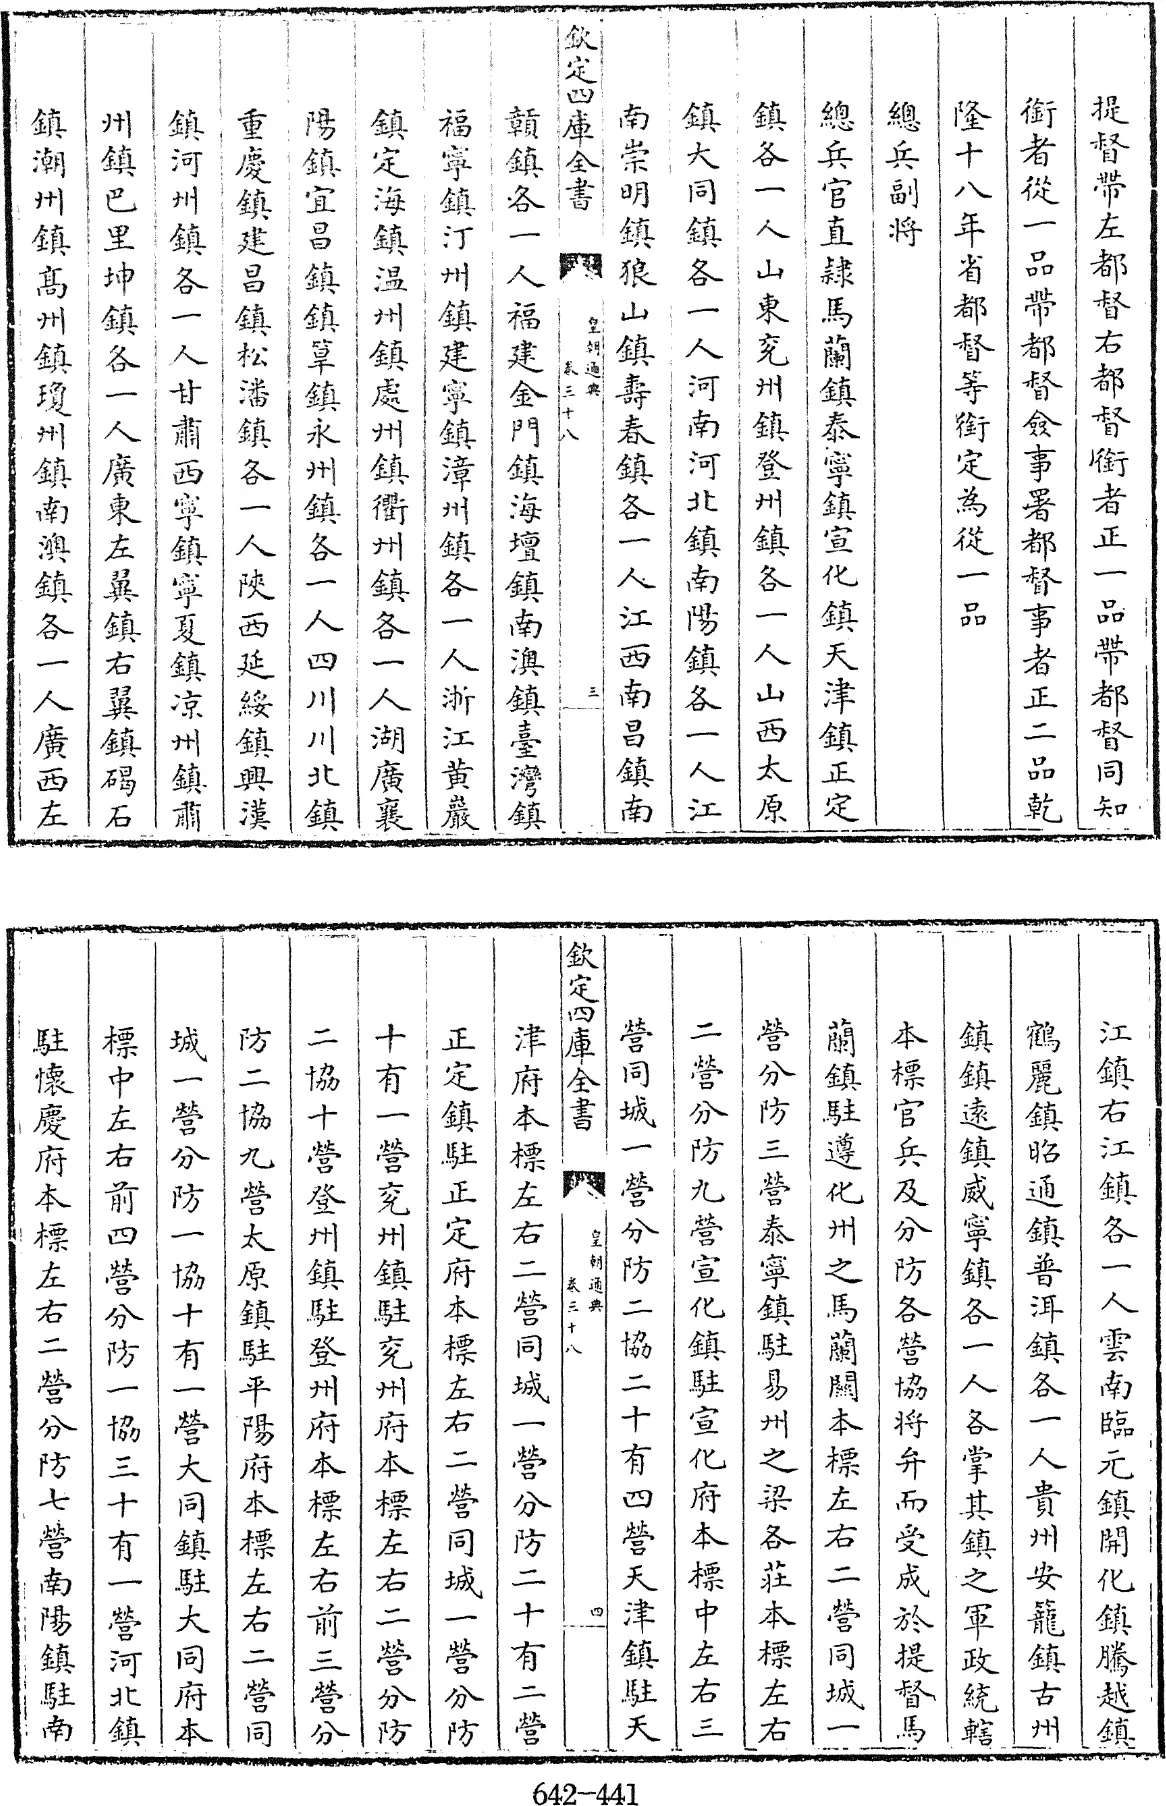 提督帶左都督右都督銜者正一品帶都督同知
銜者從一品帶都督僉事署都督事者正二品乾
隆十八年省都督等銜定為從一品
總兵副將
總兵官直隸馬蘭鎮泰寧鎮宣化鎮天津鎮正定
鎮各一人山東兖州鎮登州鎮各一人山西太原
鎮大同鎮各一人河南河北鎮南陽鎮各一人江
南崇明鎮狼山鎮壽春鎮各一人江西南昌鎮南
欽定四庫全書
皇朝通典
卷三十八
三
贛鎮各一人福建金門鎮海壇鎮南澳鎮臺灣鎮
福寧鎮汀州鎮建寧鎮漳州鎮各一人浙江黄巖
鎮定海鎮温州鎮處州鎮衢州鎮各一人湖廣襄
陽鎮宜昌鎮鎮筸鎮永州鎮各一人四川川北鎮
重慶鎮建昌鎮松潘鎮各一人陜西延綏鎮興漢
鎮河州鎮各一人甘肅西寧鎮寧夏鎮凉州鎮肅
州鎮巴里坤鎮各一人廣東左翼鎮右翼鎮碣石
鎮潮州鎮髙州鎮瓊州鎮南澳鎮各一人廣西左
江鎮右江鎮各一人雲南臨元鎮開化鎮騰越鎮
鶴麗鎮昭通鎮普洱鎮各一人貴州安籠鎮古州
鎮鎮遠鎮威寧鎮各一人各掌其鎮之軍政統轄
本標官兵及分防各營協將弁而受成於提督馬
蘭鎮駐遵化州之馬蘭關本標左右二營同城一
營分防三營泰寧鎮駐易州之梁各莊本標左右
二營分防九營宣化鎮駐宣化府本標中左右三
營同城一營分防二協二十有四營天津鎮駐天
欽定四庫全書
皇朝通典
卷三十八
四
津府本標左右二營同城一營分防二十有二營
正定鎮駐正定府本標左右二營同城一營分防
十有一營兖州鎮駐兖州府本標左右二營分防
二協十營登州鎮駐登州府本標左右前三營分
防二協九營太原鎮駐平陽府本標左右二營同
城一營分防一協十有一營大同鎮駐大同府本
標中左右前四營分防一協三十有一營河北鎮
駐懷慶府本標左右二營分防七營南陽鎮駐南
642-441